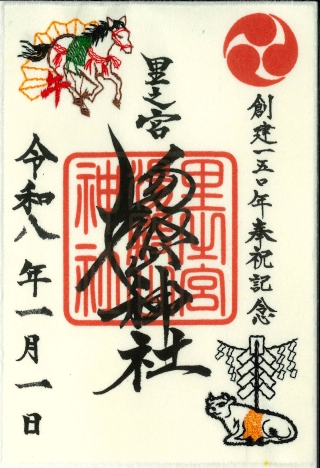 創建一五〇年奉祝記念
里之宮
湯殿山神社
里之宮
神社
令和八年一月一日